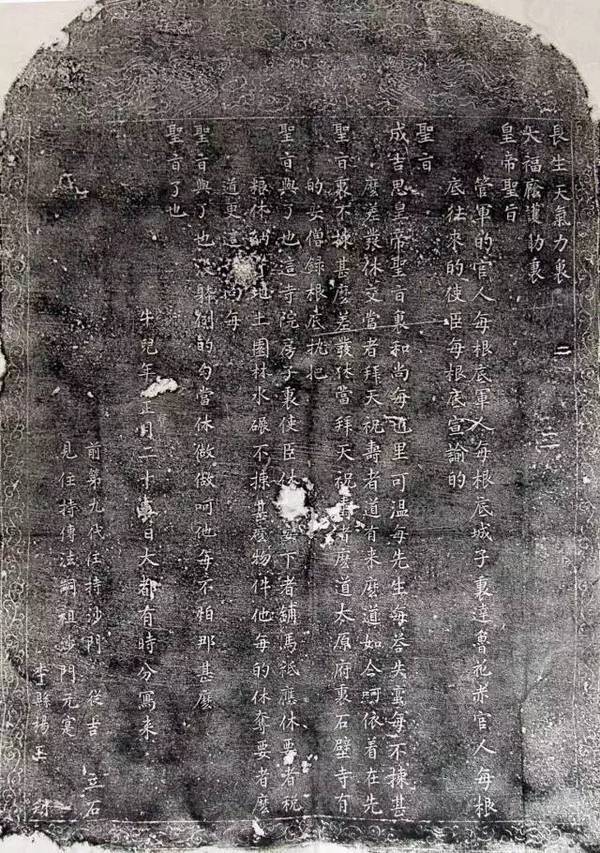 長生天氣力裏
大福廕護助裏
皇帝聖旨
管軍的官人每根底軍人每根底城子裏達魯花赤官人每根
底往來的使臣每根底宣諭的
聖旨
成吉思皇帝聖旨裏和尚每也里可温每先生每荅失蠻每不揀甚
麼差發休交當者拜天祝壽者道有来麼道如今照依着在先
聖旨裏不揀甚麼差發休當拜天祝壽者麼道太原府裏石壁寺有
的安僧録根底執把
聖旨與了也這寺院房子裏使臣休安下者鋪馬祗應休要者税
粮休納者地土園林水碾不揀甚麼物件他每的休奪要者麼
道更這和尚每
聖旨與了也没躰例的勾當休做做呵他每不怕那甚麼
聖旨了也
牛兒年正月二十日大都有時分寫来
前第九代住持沙門 從吉 立石
見住持傳法嗣祖沙門元寔
李縣楊玉